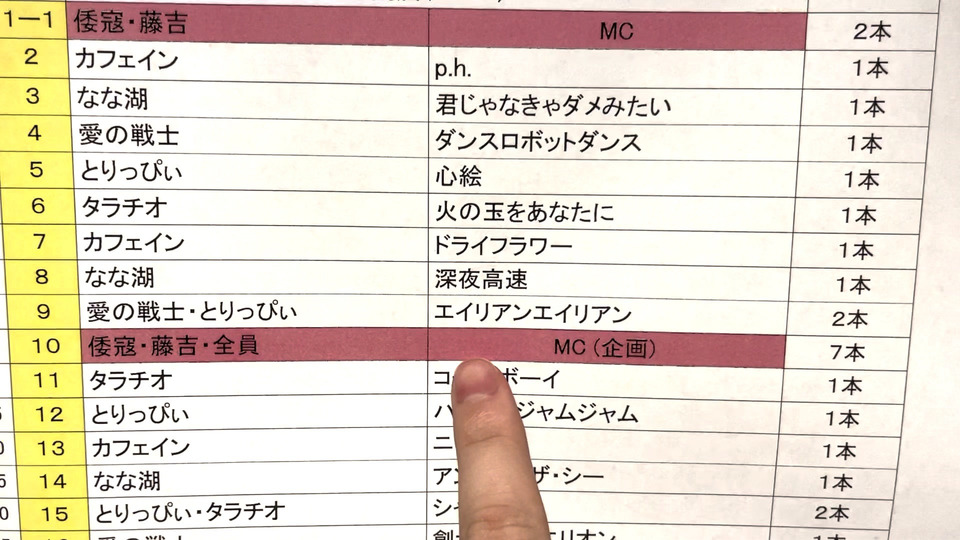 1-1 倭寇・藤吉 MC 2本
2 カフェイン p.h. 1本
3 なな湖 君じゃなきゃダメみたい 1本
4 愛の戦士 ダンスロボットダンス 1本
5 とりっぴぃ 心絵 1本
6 タラチオ 火の玉をあなたに 1本
7 カフェイン ドライフラワー 1本
8 なな湖 深夜高速 1本
9 愛の戦士・とりっぴぃ エイリアンエイリアン 2本
10 倭寇・藤吉・全員 MC(企画) 7本
11 タラチオ ボーイ 1本
12 とりっぴぃ ジャムジャム 1本
13 カフェイン 1本
14 なな湖 ザ・シー 1本
15 とりっぴぃ・タラチオ 2本